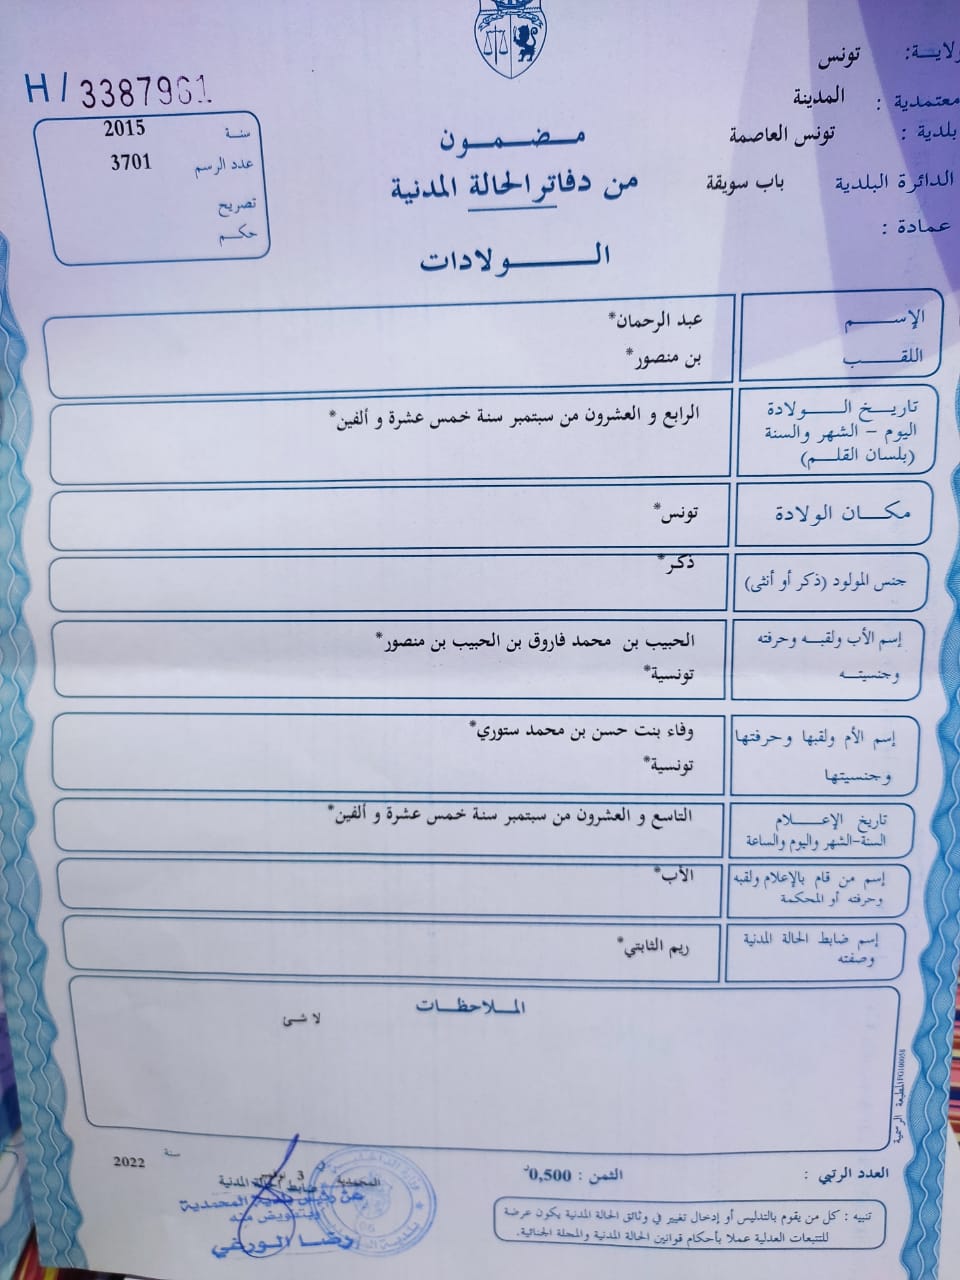 ولايـــة: تونس
معتمدية : المدينة
بلدية : تونس العاصمة
الدائرة البلدية باب سويقة
عمادة :
مـضـمــون
من دفاتر الحالة المدنية
الــــولادات
H/ 3387961
سنـة 2015
عدد الرسم 3701
تصريح
حكـم
الإســـم عبد الرحمان*
اللقـــب بن منصور*
تاريـــخ الــــولادة الرابع و العشرون من سبتمبر سنة خمس عشرة و ألفين*
اليوم – الشهر والسنة
(بلسان القلـــم)
مكـــان الولادة تونس*
جنس المولود (ذكر أو أنثى) ذكر*
إسم الأب ولقبـه وحرفته الحبيب بن محمد فاروق بن الحبيب بن منصور*
وجنسيتــه تونسية*
إسم الأم ولقبها وحرفتها وفاء بنت حسن بن محمد ستوري*
وجنسيتها تونسية*
تاريخ الإعـــلام التاسع و العشرون من سبتمبر سنة خمس عشرة و ألفين*
السنة-الشهر واليوم والساعة
إسم من قام بالإعلام ولقبه الأب*
وحرفته أو المحكمة
إسم ضابط الحالة المدنية ريم الثابتي*
وصفته
الملاحظـــات
لا شئ
المطبعة الرسمية
العدد الرتبي :
الثمن : 0,500د
تنبيه : كل من يقوم بالتدليس أو إدخال تغيير في وثائق الحالة المدنية يكون عرضة
للتتبعات العدلية عملا بأحكام قوانين الحالة المدنية والمجلة الجنائية.
سنة 2022
المحمدية 3
ضابط الحالة المدنية
عن رئيس بلدية المحمدية
وبتفويض منه
رضا الورفي